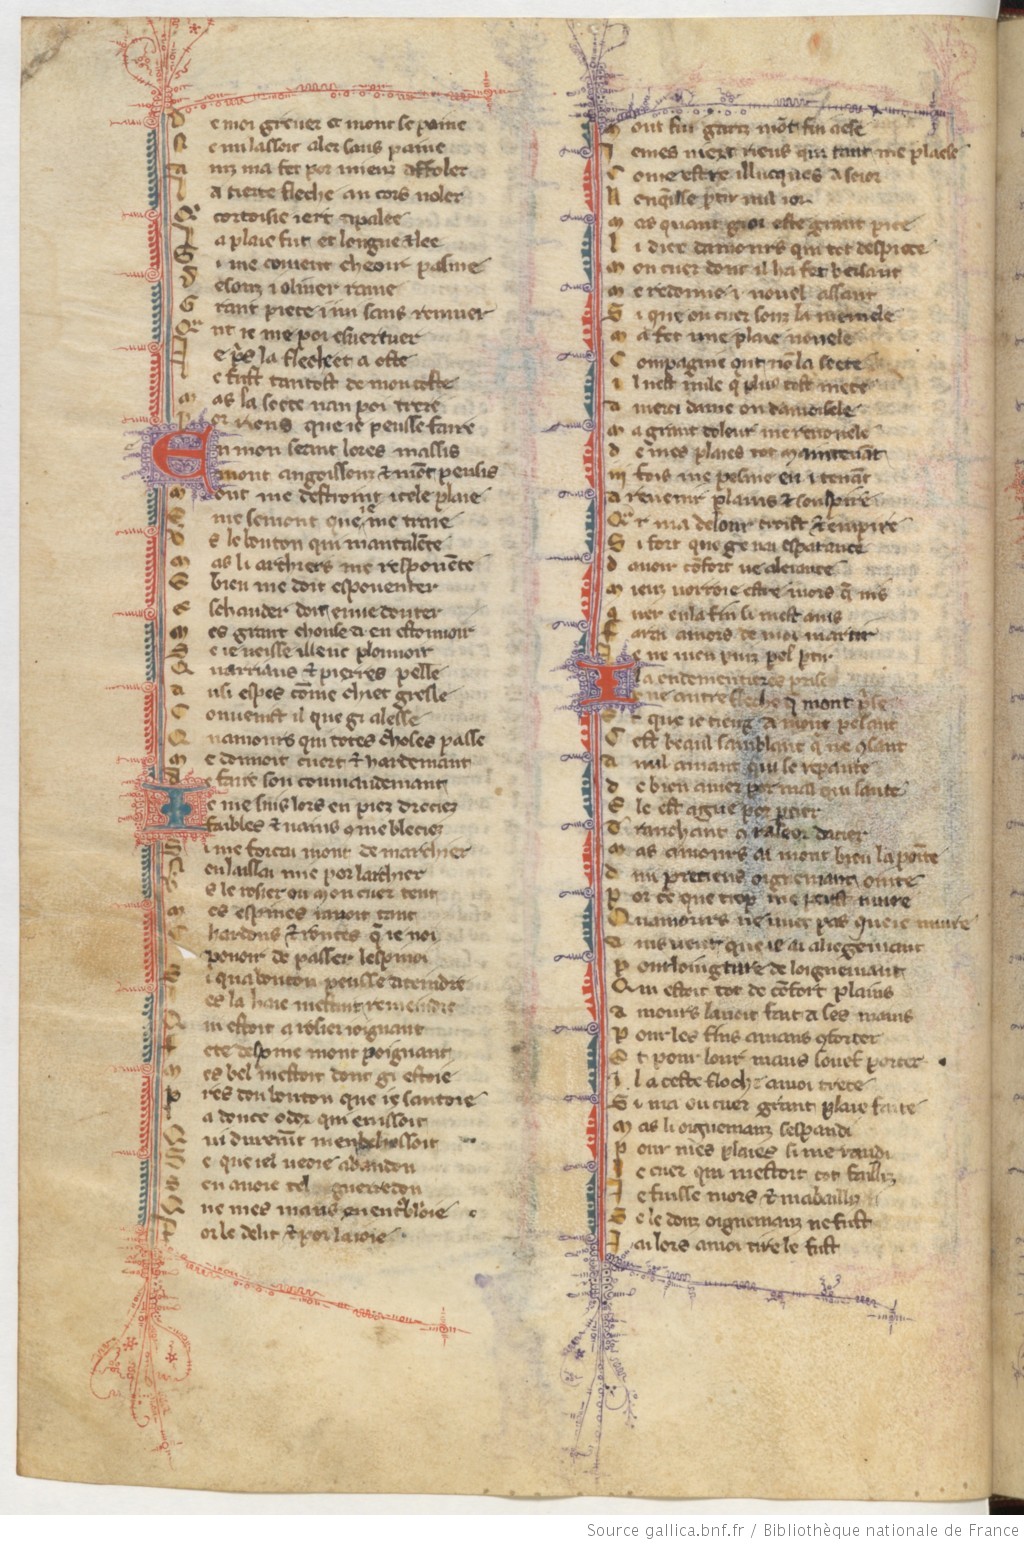 De moi grever et mont se paine
Ne mi lassoit aler sans paine
Ainz ma fet por mieuz affoler
La tierce fleche au cors voler
Cortoisie iert apalee
La plaie fut et longue et lee
Si me covient cheoir pasme
Desouz i olivier rame
Grant piece i iui sans remuer
Quant ie me poi esvertuer
Ie pris la fleche et a oste
Le fust tantost de mon coste
Mas la seete nan poi trere
Por riens que ie peusse faire
En mon seant lores massis
mont angoisseuz et mont pensis
Mont me destroint icele plaie
Et me semont que ie me traie
Vs le bouton qui mantalente
Mas li archiers me respouente
Et bien me doit espouenter
eschauder doit eaue douter
Mes grant chouse a en estouoir
Se ie veisse illeuc plouuoir
Quarriaus et pierres pelle
Ausi espes come chiet gresle
Convenist il que gi alesse
Quamours qui totes choses passe
Me donnoit cuert et hardemant
De faire son commandemant
Ie me suis lors en piez dreciez
Faibles et vains come bleciez
Si me forcai mont de marchier
enlaissai mie por larchier
Vs le rosier ou mon cuer tent
Mes espines i avoit tant
Chardons et ronces que ie noi
Pouoir de passer lespinoi
Si qua bouton peusse ataindre
Les la haie mestut remendre
Qui estoit a rosier ioignant
Fete despine mont poignant
Mes bel mestoit dont gi estoie
Pres dou bouton que ie santoie
La douce odor qui en issoit
Qui durement menbelissoit
Se que iel veoie abandon
Sen avoie tel guerredon
Que mes maus en entrobloie
Por le delit et por la ioie
Mont fui gariz mont fui aese
Iemes niert riens qui tant me plaese
Come estre illucques a seior
Nen quisse partir nul ior
Mas quant gi oi este grant piece
Li diex damours qui tot despiece
Mon cuer dont il ha fet bersaut
Me redonne i novel assaut
Si que ou cuer souz la memele
Ma fet une plaie novele
Compagnie out non la seete
Il nest nule qui plus tost mete
A merci dame ou damoisele
Ma grant doleur me renovele
De mes plaies tot maintenant
iii fois me pasme en i tenant
A revenir plains et souspire
Car ma dolour croist et empire
Si fort que ge nai esperance
Davoir confort ne alejance
Mieuz vorroie estre mors que vis
Quer en la fin si mest avis
Fera amors de moi martir
Ie ne men puis pel partir
Il a endementieres prise
Une autre fleche que mont prise
Et que ie tieng a mont pesant
Cest beaul samblant qui ne consant
A nul amant qui se repante
De bien amer por mal qui sante
Ele est ague por percier
Tranchant come rasoor dacier
Mas amours ai mont bien la pointe
Dun precieus oignemant ointe
Por ce que trop me peust nuire
Quamours ne viut pas que ie muire
Ains veut que ie ai aliegemant
Pour loingture de loignemant
Qui estoit tot de confort plains
Amours lavoit fait a ses mains
Pour les fins amans conforter
Et pour lour maus louef porter
Il a ceste floche a moi trete
Si ma ou cuer grant plaie faite
Mas li oignemanz sespandi
Pour mes plaies si me randi
Le cuer qui mestoit tot failliz
Ie fuisse mors et mabailliz
Se le douz oignemanz ne fust
Lai lors a moi tire le fust
Source gallica.bnf.fr / Bibliothèque nationale de France